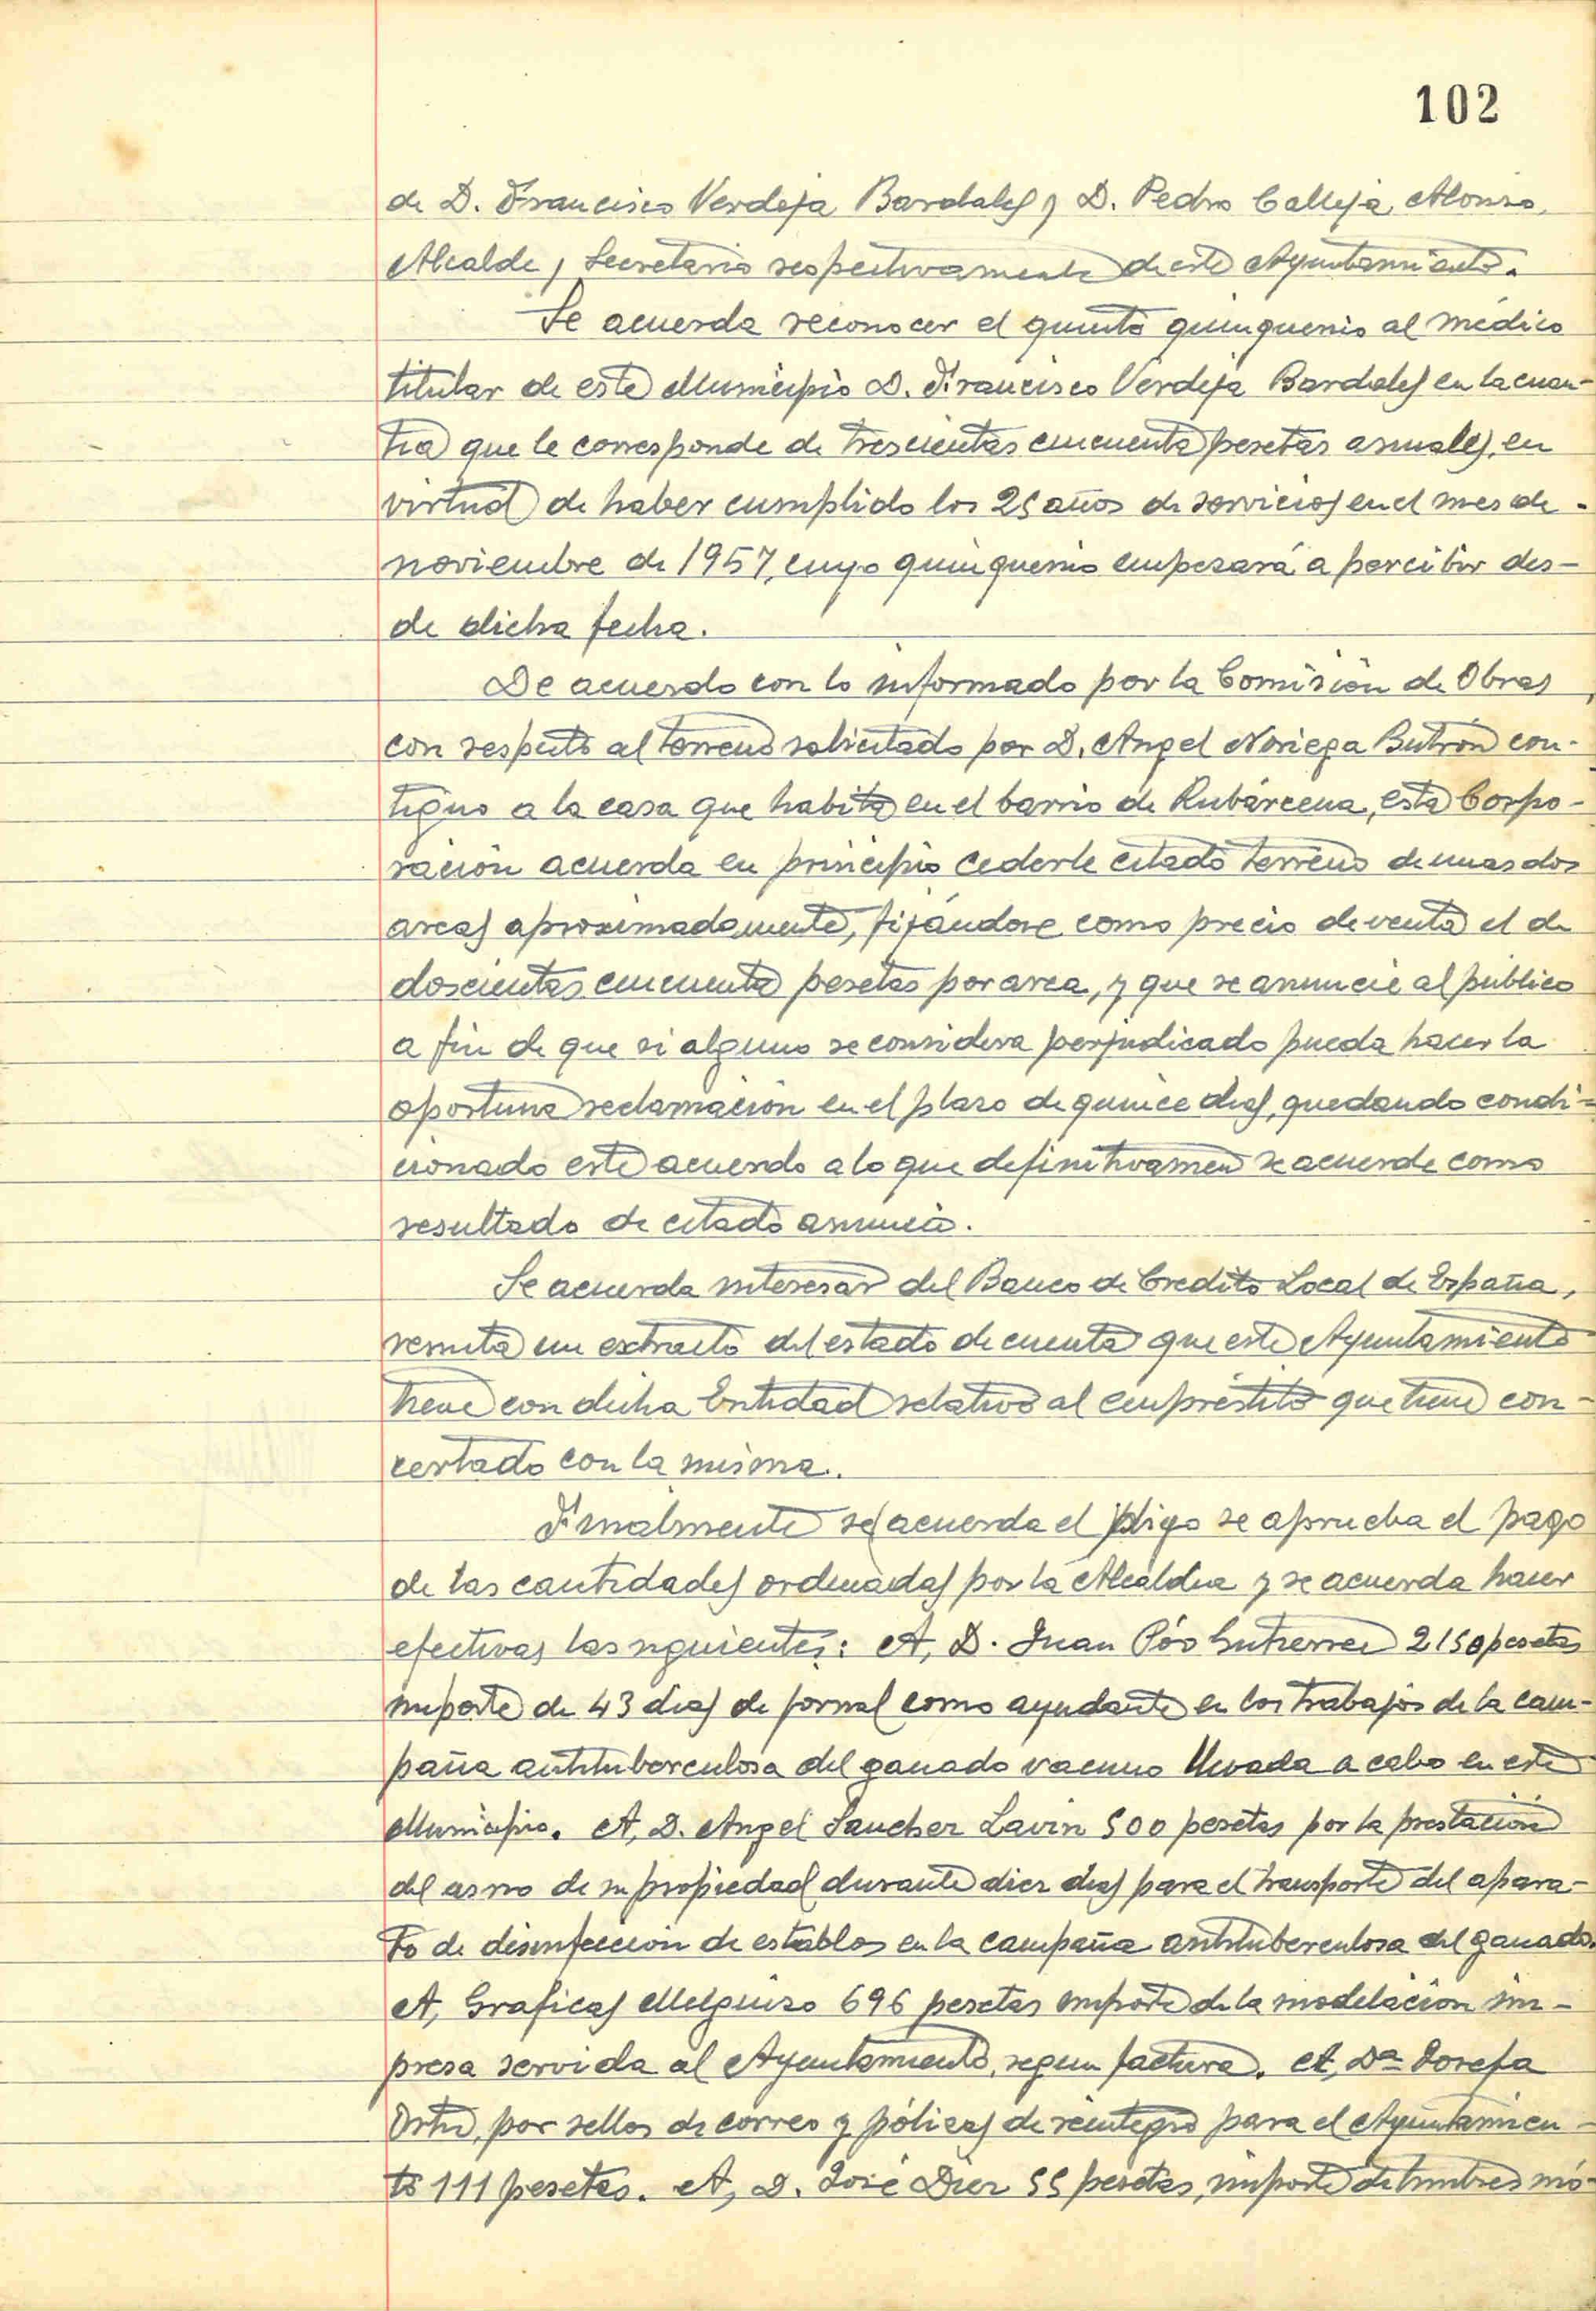 102
de D. Francisco Verdeja Bardales y D. Pedro Calleja Alonso,
Alcalde y Secretario respectivamente de este Ayuntamiento.
Se acuerda reconocer el quinto quinquenio al médico
titular de este Municipio D. Francisco Verdeja Bardales en la cuan-
tia que le corresponde de trescientas cincuenta pesetas anuales, en
virtud de haber cumplido los 25 años de servicios en el mes de -
noviembre de 1957, cuyo quinquenio empezará a percibir des-
de dicha fecha.
De acuerdo con lo informado por la Comisión de Obras,
con respecto al terreno solicitado por D. Angel Noriega Butrón con-
tiguo a la casa que habita en el barrio de Rubárcena, esta Corpo-
ración acuerda en principio cederle citado terreno de unas dos
areas aproximadamente, fijándose como precio de venta el de
doscientas cincuenta pesetas por area, y que se anuncie al público
a fin de que si alguno se considera perjudicado pueda hacer la
oportuna reclamación en el plazo de quince dias, quedando condi-
cionado este acuerdo a lo que definitivamen se acuerde como
resultado de citado anuncio.
Se acuerda interesar del Banco de Credito Local de España,
remita un extracto del estado de cuenta que este Ayuntamiento
tiene con dicha Entidad relativo al empréstito que tiene con-
certado con la misma.
Finalmente se acuerda el digo se aprueba el pago
de las cantidades ordenadas por la Alcaldia y se acuerda hacer
efectivas las siguientes: A, D. Juan Póo Gutierrez 2150 pesetas
importe de 43 dias de jornal como ayudante en los trabajos de la cam-
paña antituberculosa del ganado vacuno llevada a cabo en este
Municipio. A, D. Angel Sanchez Lavin 500 pesetas por la prestación
del asno de su propiedad durante diez dias para el transporte del apara-
to de desinfección de establos en la campaña antituberculosa del ganado.
A, Graficas Melguizo 696 pesetas importe de la modelación im-
presa servida al Ayuntamiento, segun factura. A, Dª Josefa
Ortiz, por sellos de correo y pólizas de reintegro para el Ayuntamien-
to 111 pesetas. A, D. José Diez 55 pesetas, importe de timbres mó-